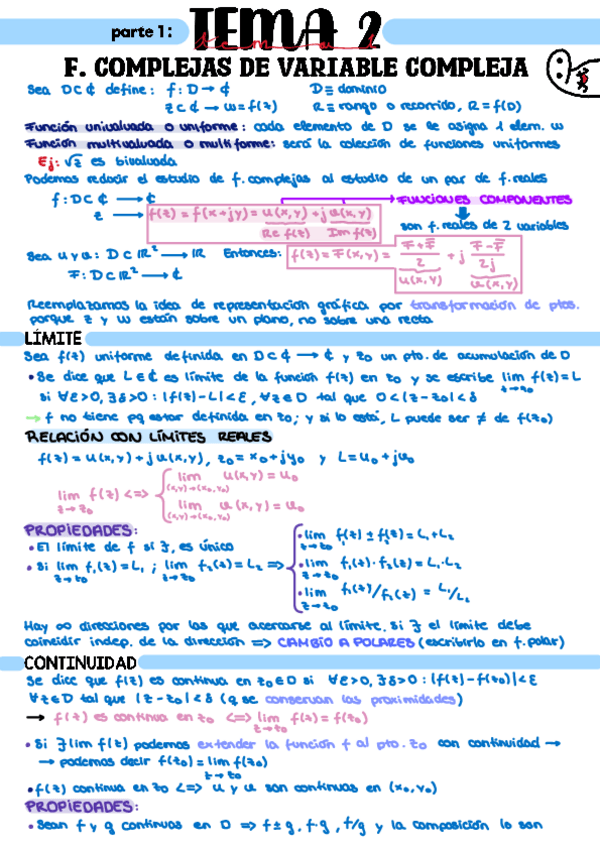 parte 1:
TEMA 2
F. COMPLEJAS DE VARIABLE COMPLEJA
Sea D⊂ℂ define: f: D → ℂ D ≡ dominio
z⊂ℂ → w=f(z) R ≡ rango o recorrido, R = f(D)
Función univaluada o uniforme: cada elemento de D se le asigna 1 elem. w
Función multivaluada o multiforme: será la colección de funciones uniformes
Ej: √z es bivaluada
Podemos reducir el estudio de f. complejas al estudio de un par de f. reales
f: D⊂ℂ → ℂ FUNCIONES COMPONENTES
z → f(z) = f(x+jy) = u(x,y) + j v(x,y) son f. reales de 2 variables
Re f(z) Im f(z)
Sea u y v: D⊂ℝ² → ℝ Entonces: f(z) = F(x,y) = (F+F̅)/2 + j (F-F̅)/2j
F: D⊂ℝ² → ℂ u(x,y) v(x,y)
Reemplazamos la idea de representación gráfica por transformación de ptos.
porque z y w están sobre un plano, no sobre una recta
LÍMITE
Sea f(z) uniforme definida en D⊂ℂ → ℂ y z₀ un pto. de acumulación de D
• Se dice que L∈ℂ es límite de la función f(z) en z₀ y se escribe lim f(z)=L
z→z₀
si ∀ε>0, ∃δ>0 : |f(z)-L|<ε, ∀z∈D tal que 0<|z-z₀|<δ
→ f no tiene pq estar definida en z₀; y si lo está, L puede ser ≠ de f(z₀)
RELACIÓN CON LÍMITES REALES
f(z) = u(x,y) + j v(x,y), z₀ = x₀ + jy₀ y L = u₀ + jv₀
lim f(z) <=> { lim u(x,y) = u₀
z→z₀ (x,y)→(x₀,y₀)
lim v(x,y) = v₀
(x,y)→(x₀,y₀)
PROPIEDADES:
• El límite de f si ∃, es único
• Si lim f₁(z)=L₁ ; lim f₂(z)=L₂ =>
z→z₀ z→z₀
• lim f₁(z) ± f₂(z) = L₁+L₂
z→z₀
• lim f₁(z)·f₂(z) = L₁·L₂
z→z₀
• lim f₁(z)/f₂(z) = L₁/L₂
z→z₀
Hay ∞ direcciones por las que acercarse al límite, si ∃ el límite debe
coincidir indep. de la dirección => CAMBIO A POLARES (escribirlo en f. polar)
CONTINUIDAD
Se dice que f(z) es continua en z₀∈D si ∀ε>0, ∃δ>0 : |f(z)-f(z₀)|<ε
∀z∈D tal que |z-z₀|<δ (q se conservan las proximidades)
→ f(z) es continua en z₀ <=> lim f(z) = f(z₀)
z→z₀
• Si ∃ lim f(z) podemos extender la función f al pto. z₀ con continuidad →
→ podemos decir f(z₀) = lim f(z₀)
z→z₀
• f(z) continua en z₀ <=> u y v son continuas en (x₀,y₀)
PROPIEDADES:
• Sean f y g continuas en D => f±g, f·g, f/g y la composición lo son